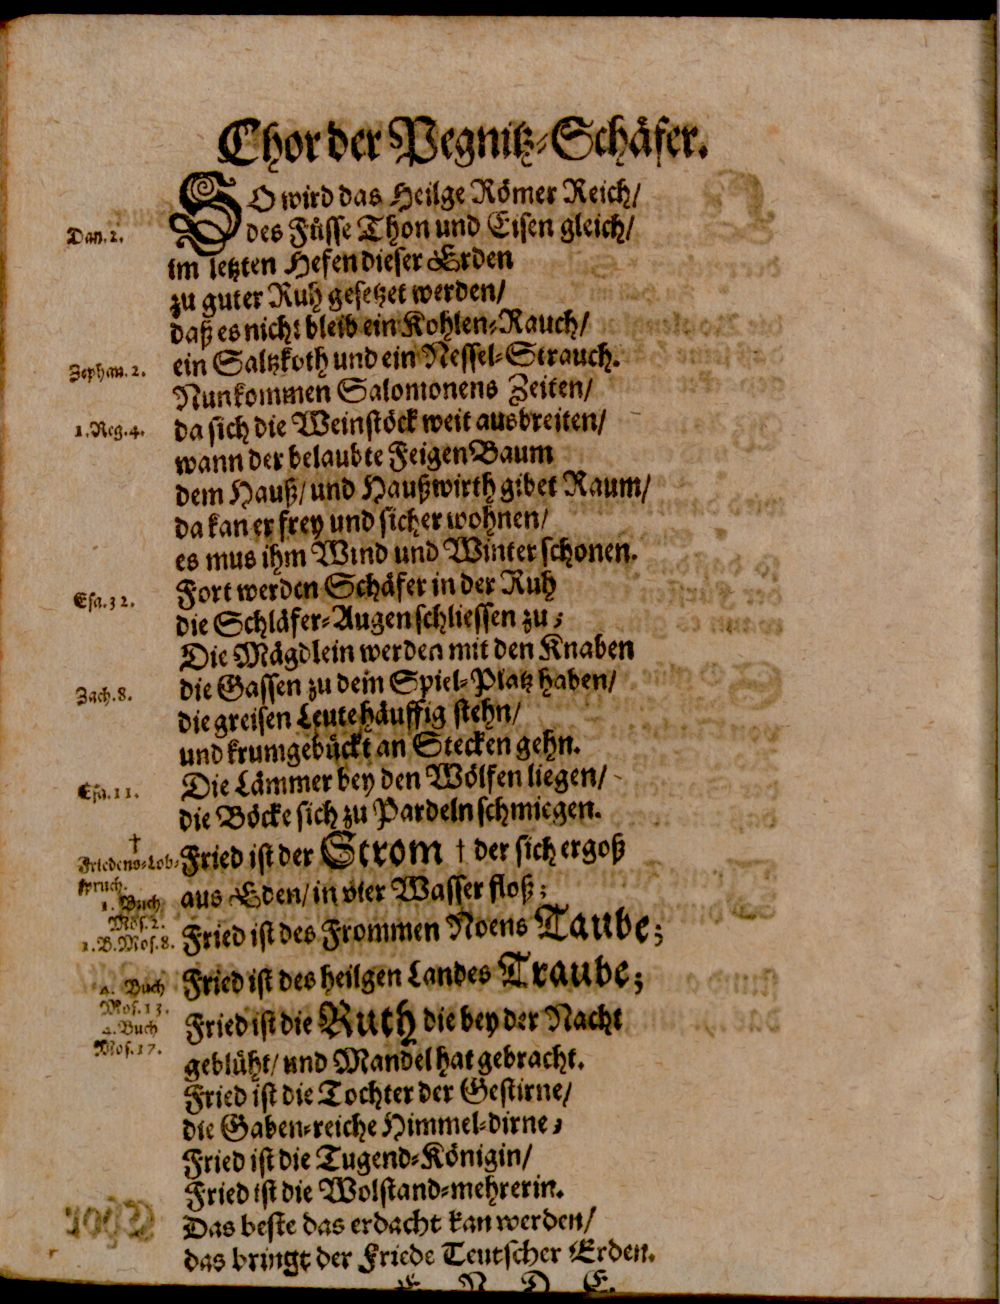 Chor der Pegnitz-Schäfer.
SO wird das Heilge Römer Reich/
Dan. 2.
des Füsse Thon und Eisen gleich/
im letzten Hefen dieser Erden
zu guter Ruh gesetzet werden/
daß es nicht bleib ein Kohlen-Rauch/
Zephan. 2.
ein Saltzkoth und ein Nessel-Strauch.
Nun kommen Salomonens Zeiten/
1. Reg. 4.
da sich die Weinstöck weit ausbreiten/
wann der belaubte FeigenBaum
dem Hauß/ und Haußwirth gibet Raum/
da kan er frey und sicher wohnen/
es mus ihm Wind und Winter schonen.
Esa. 32.
Fort werden Schäfer in der Ruh
die Schläfer-Augen schliessen zu;
Die Mägdlein werden mit den Knaben
Zach. 8.
die Gassen zu dem Spiel-Platz haben/
die greisen Leute häuffig stehn/
und krumgebückt an Stecken gehn.
Esa. 11.
Die Lämmer bey den Wölfen liegen/
die Böcke sich zu Pardeln schmiegen.
†
Friedens-Lob-
Fried ist der Strom † der sich ergoß
spruch.
1. Buch
aus Eden/ in vier Wasser floß;
Mos. 2.
1. B. Mos. 8.
Fried ist des Frommen Noens Taube;
4. Buch
Fried ist des heilgen Landes Traube;
Mos. 13.
4. Buch
Fried ist die Ruth die bey der Nacht
Mos. 17.
geblüht/ und Mandel hat gebracht.
Fried ist die Tochter der Gestirne/
die Gaben-reiche Himmel-dirne;
Fried ist die Tugend-Königin/
Fried ist die Wolstand-mehrerin.
Das beste das erdacht kan werden/
das bringt der Friede Teutscher Erden.
E N D E.